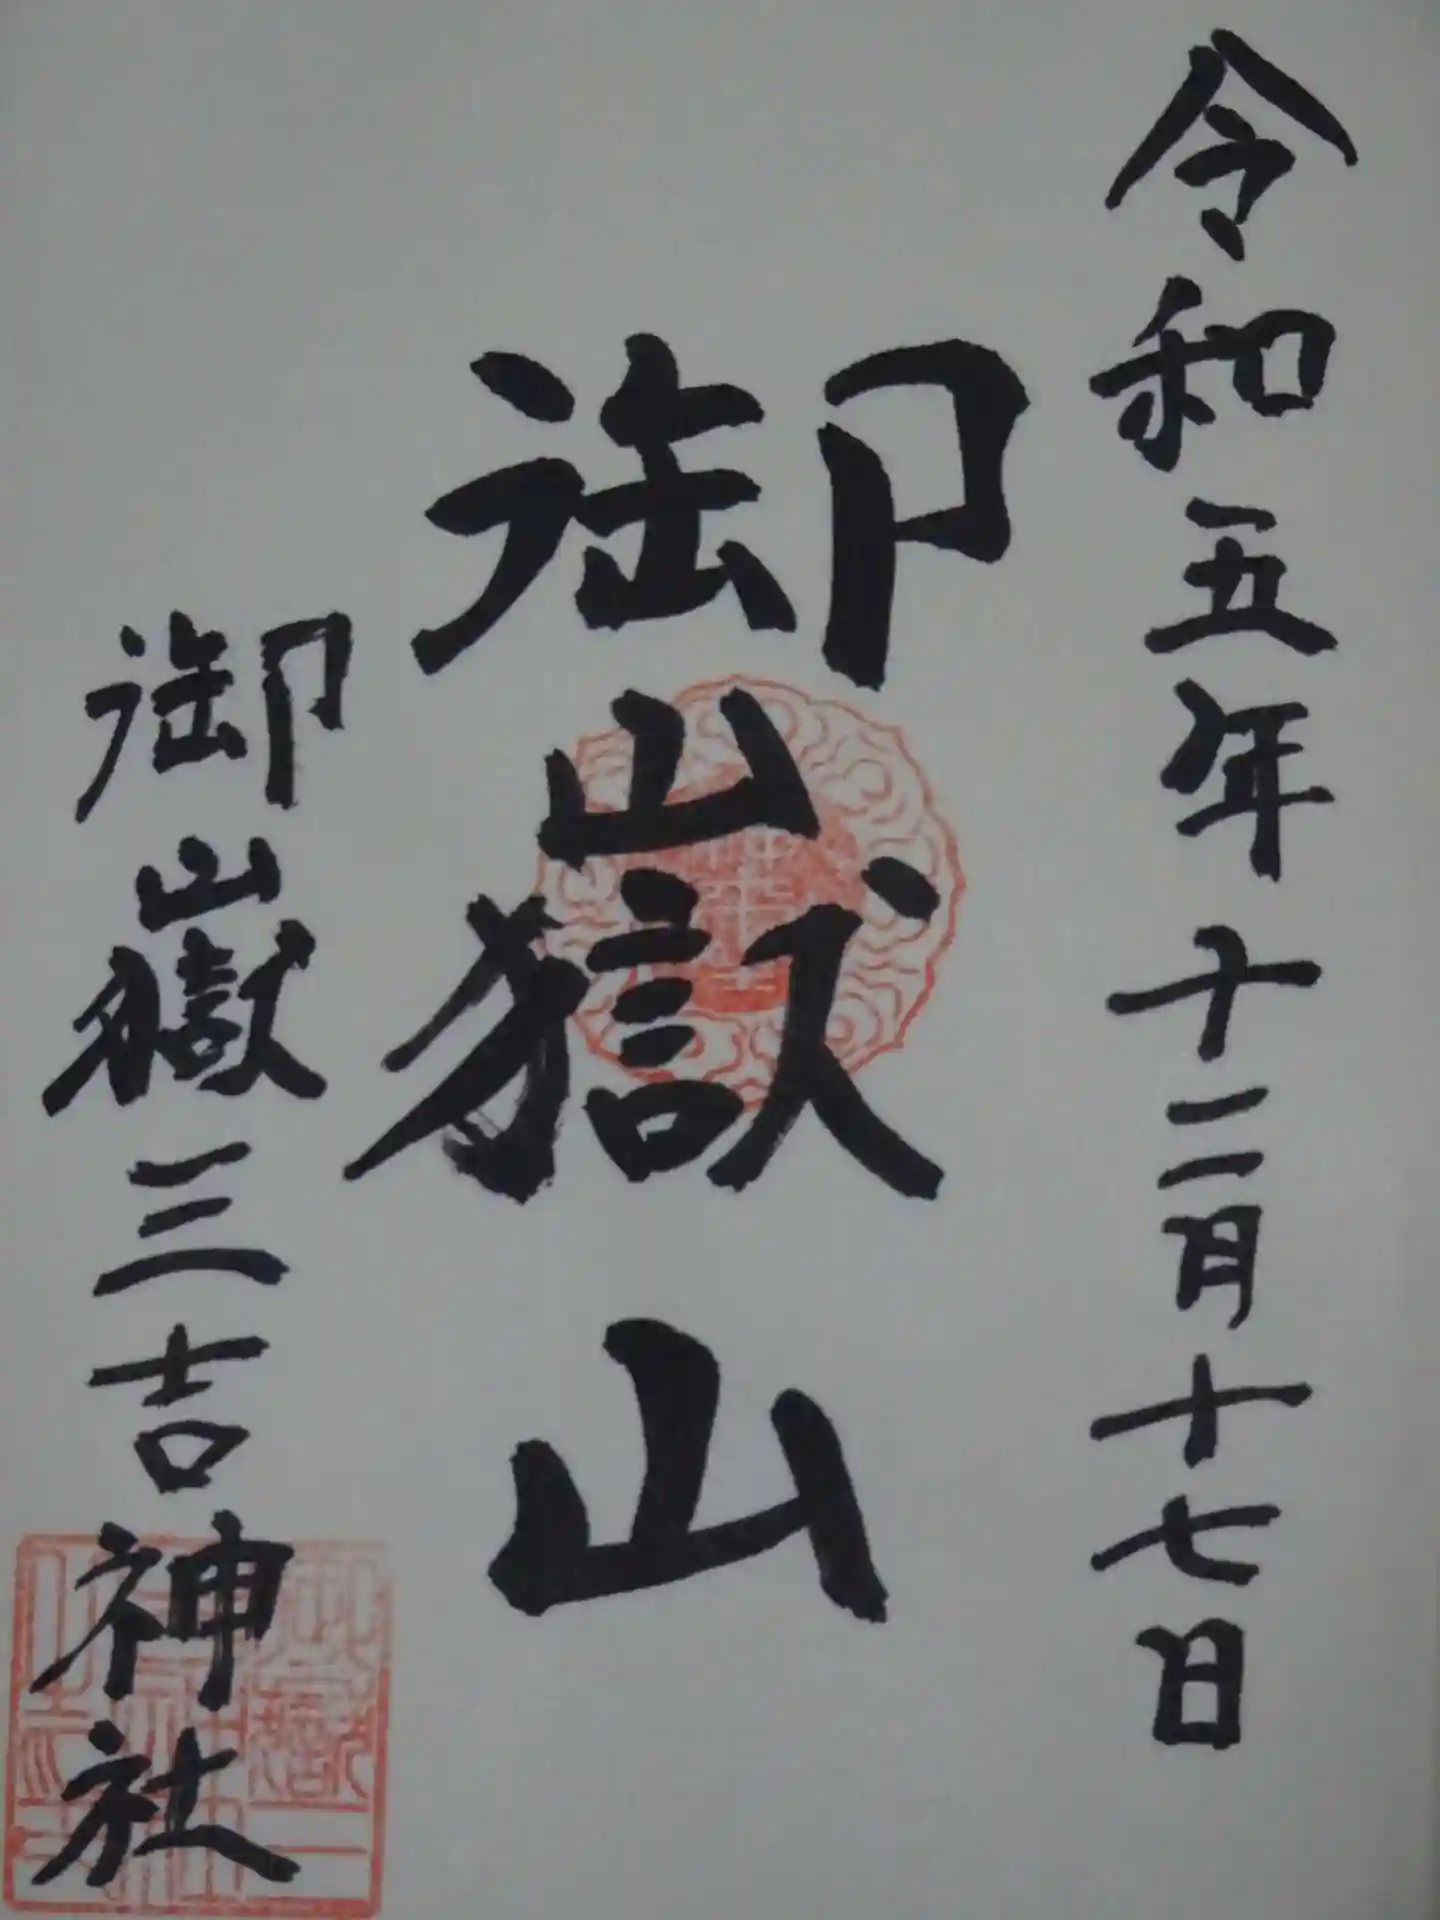 令和五年十二月十七日
御嶽山
御嶽三吉神社